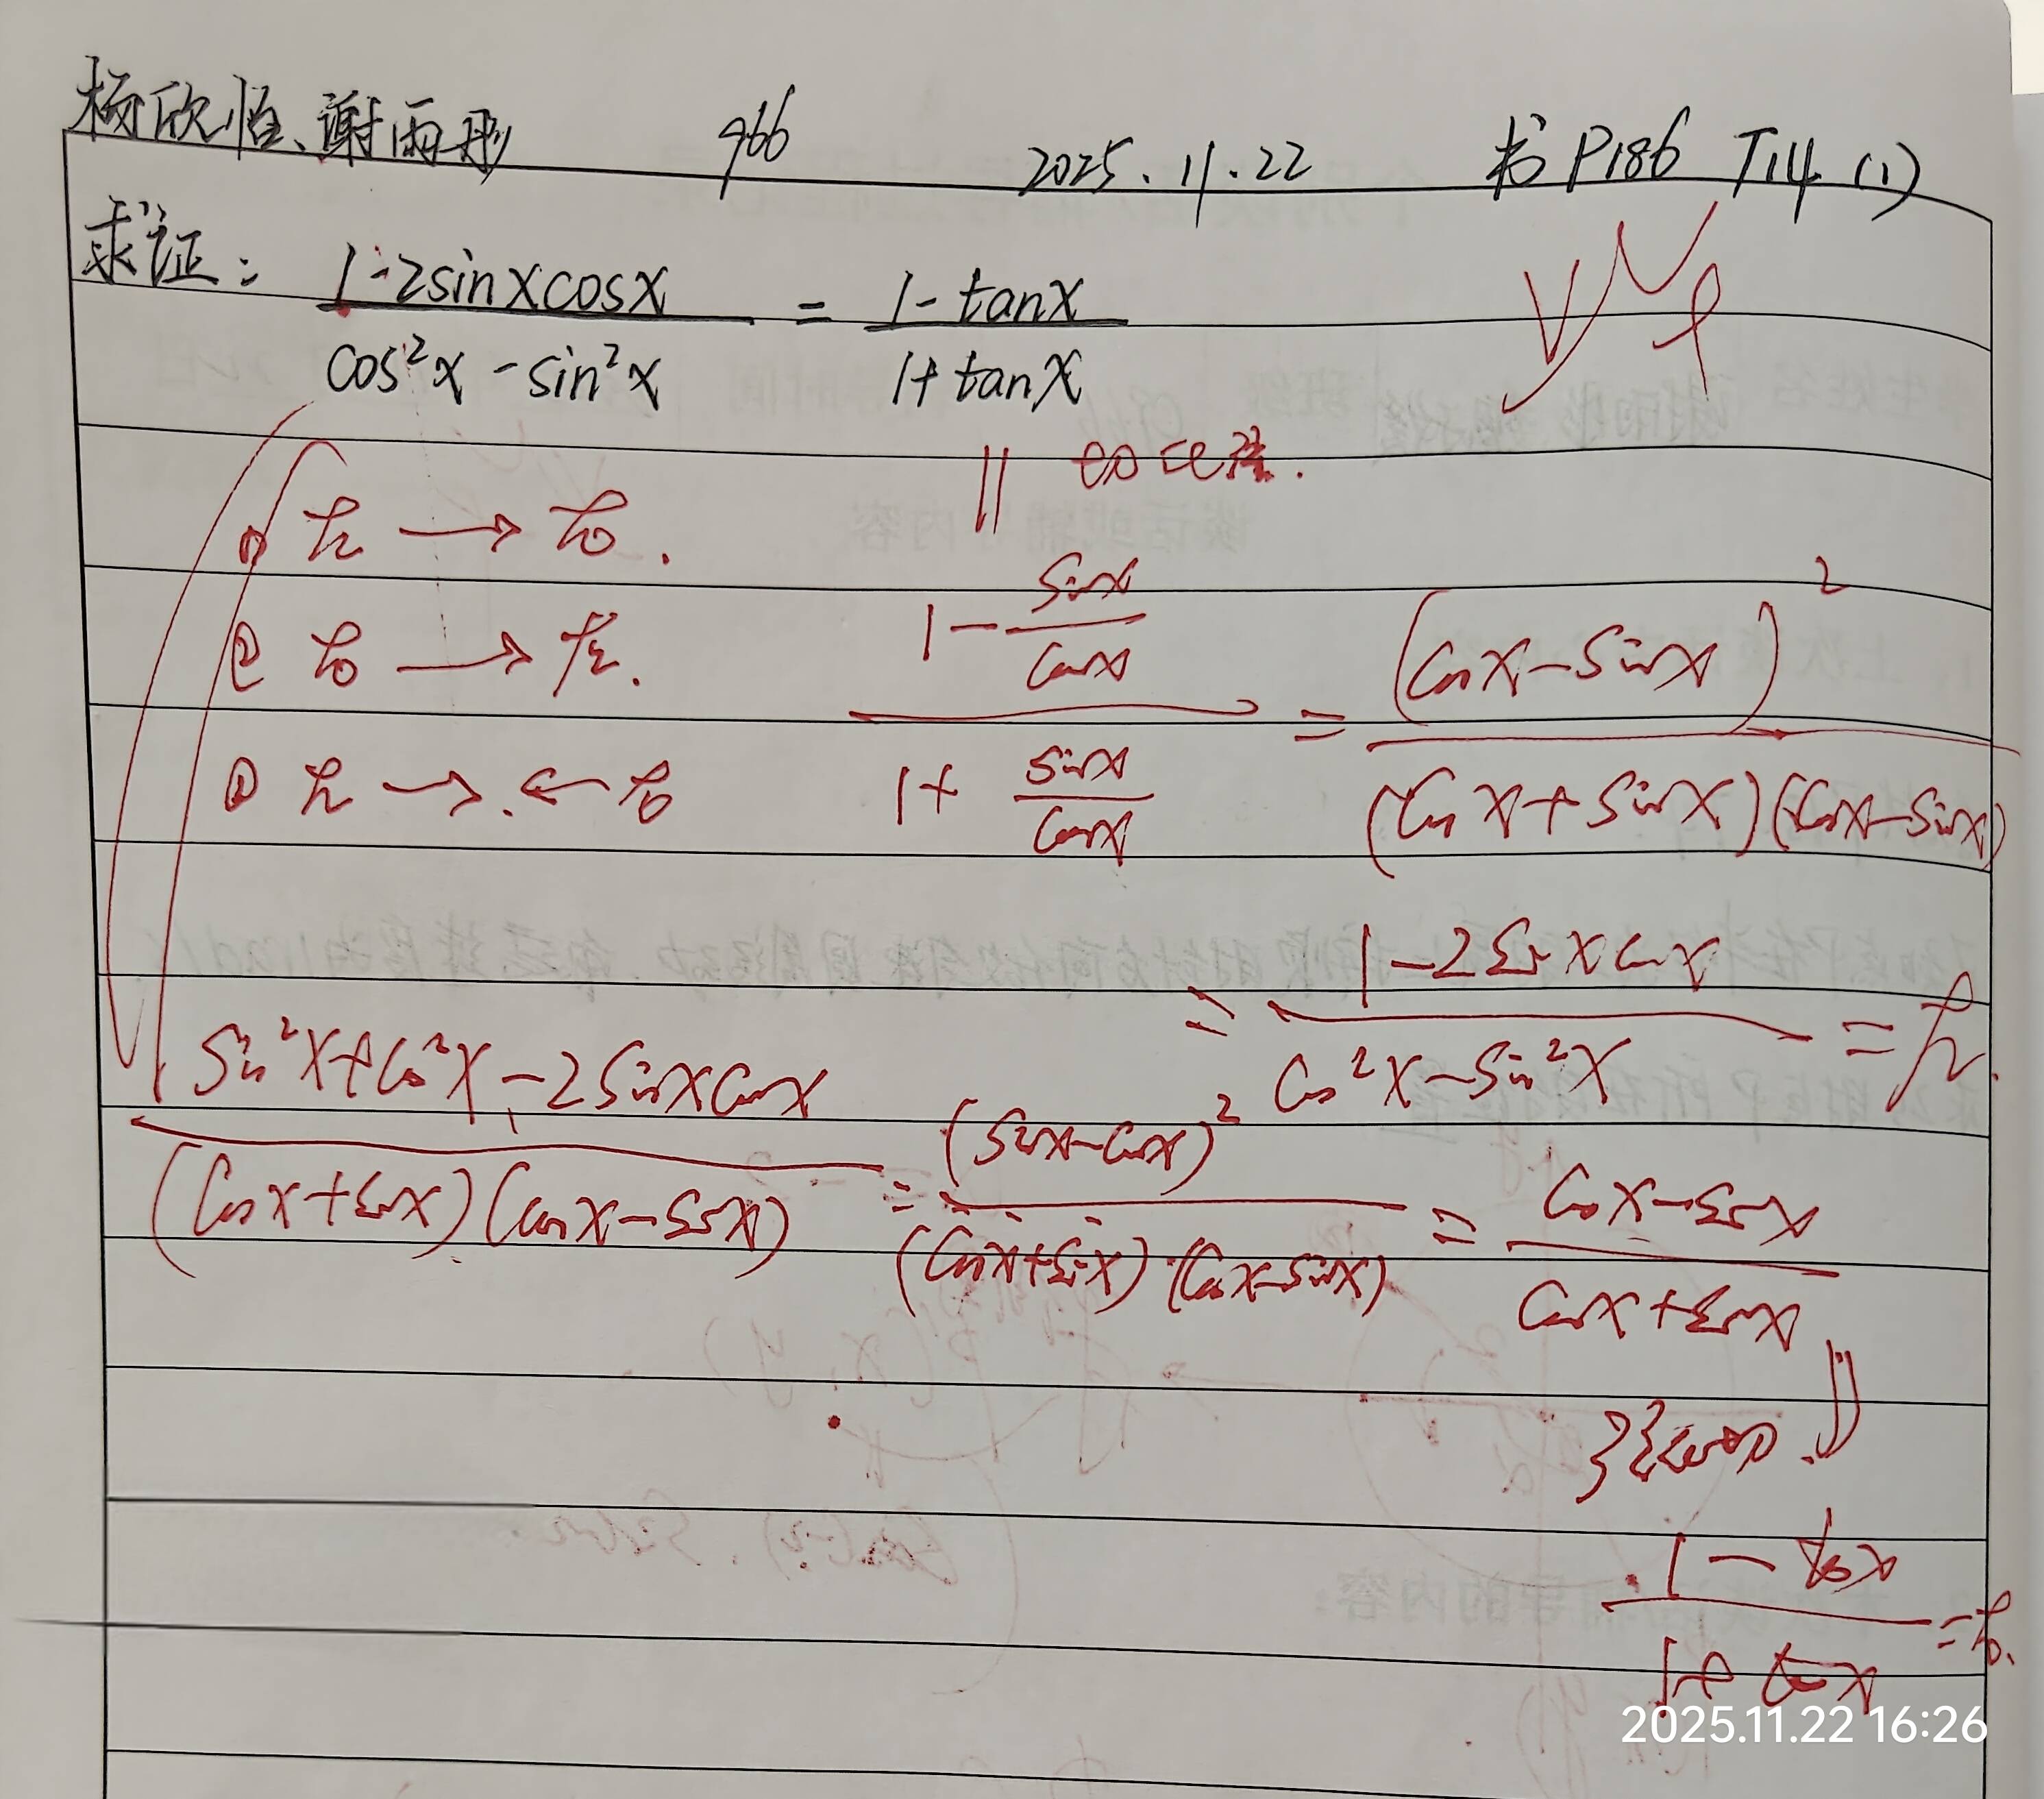 杨欣怡、谢雨彤 966 2025.11.22 书P186 T14 (1)
求证: (1-2sinxcosx)/(cos²x-sin²x) = (1-tanx)/(1+tanx)
① 左 → 右.
② 右 → 左.
左 → . ← 右
(1-sinx/cosx)/(1+sinx/cosx) = (cosx-sinx)²/((cosx+sinx)(cosx-sinx))
= (1-2sinxcosx)/(cos²x-sin²x) = 左.
(sin²x+cos²x-2sinxcosx)/((cosx+sinx)(cosx-sinx)) = (sinx-cosx)²/((cosx+sinx)·(cosx-sinx)) = (cosx-sinx)/(cosx+sinx)
(1-tanx)/(1+tanx) = 右.
2025.11.22 16:26